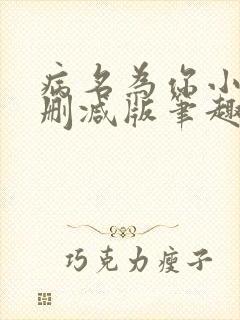 病名为你小
删减版笔趣
巧克力瘦子